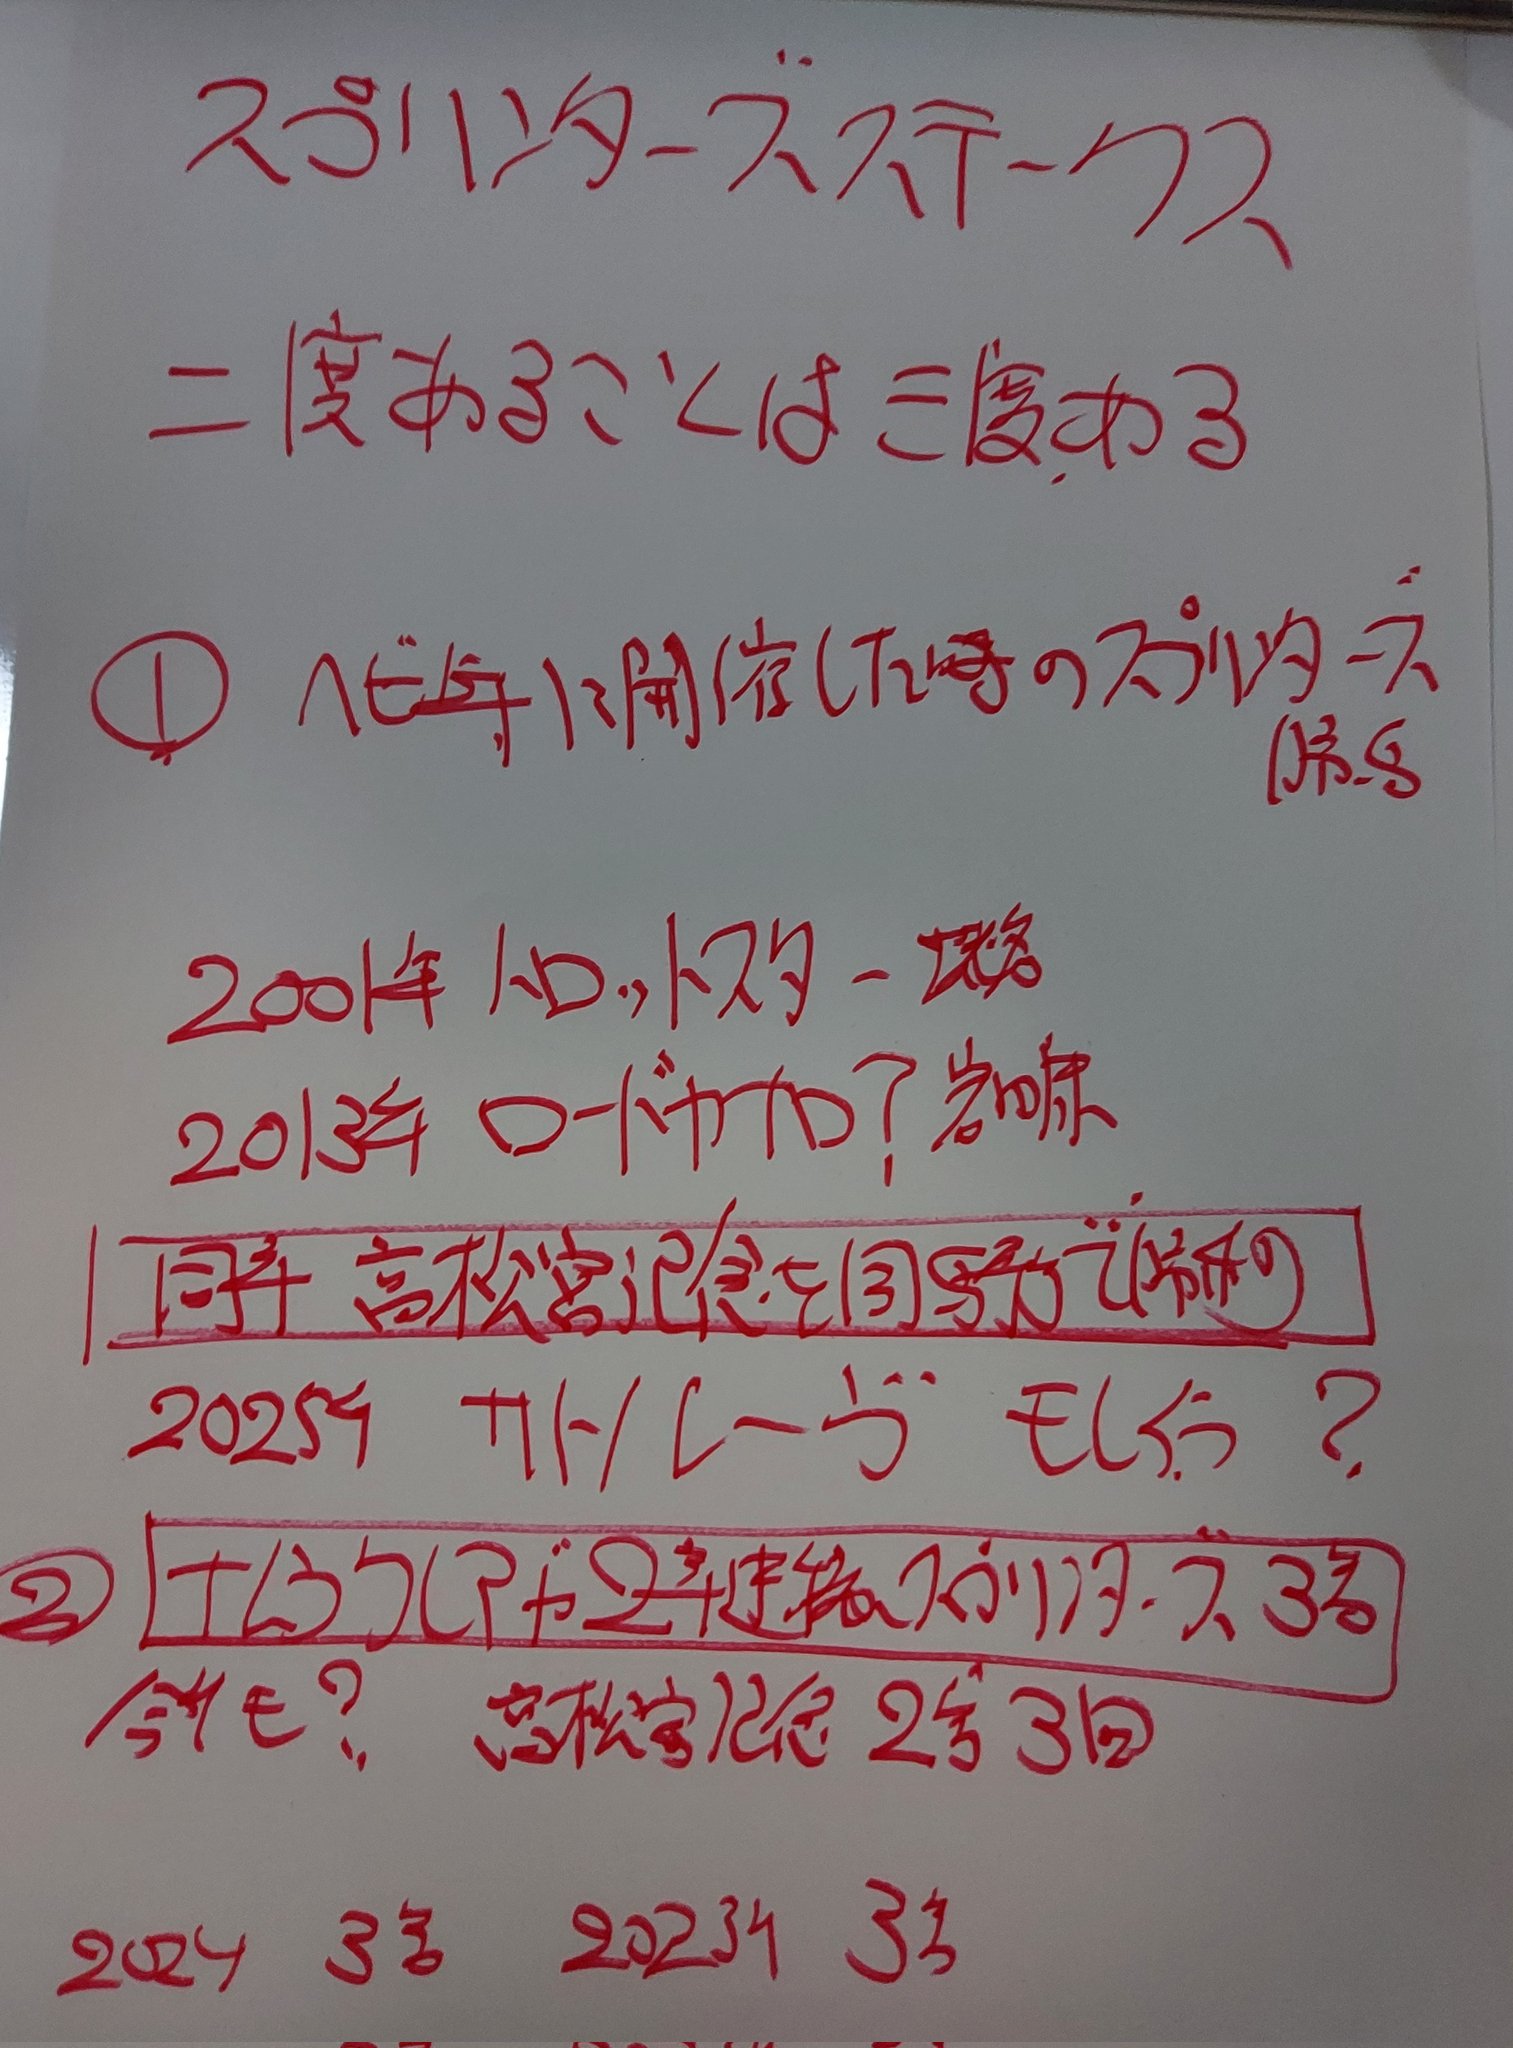 スプリンターズステークス
二度あることは三度ある
① ヘビ年に開催した時のスプリンターズ
勝ち
2001年 トロットスター 蛯名
2013年 ロードカナロア 岩田康
同年 高松宮記念も同騎手で勝利
2025年 サトノレーヴ もしくは ?
② ナムラクレアが2年連続スプリンターズ3着
今年も? 高松宮記念2着3回
2024 3着 2023年 3着